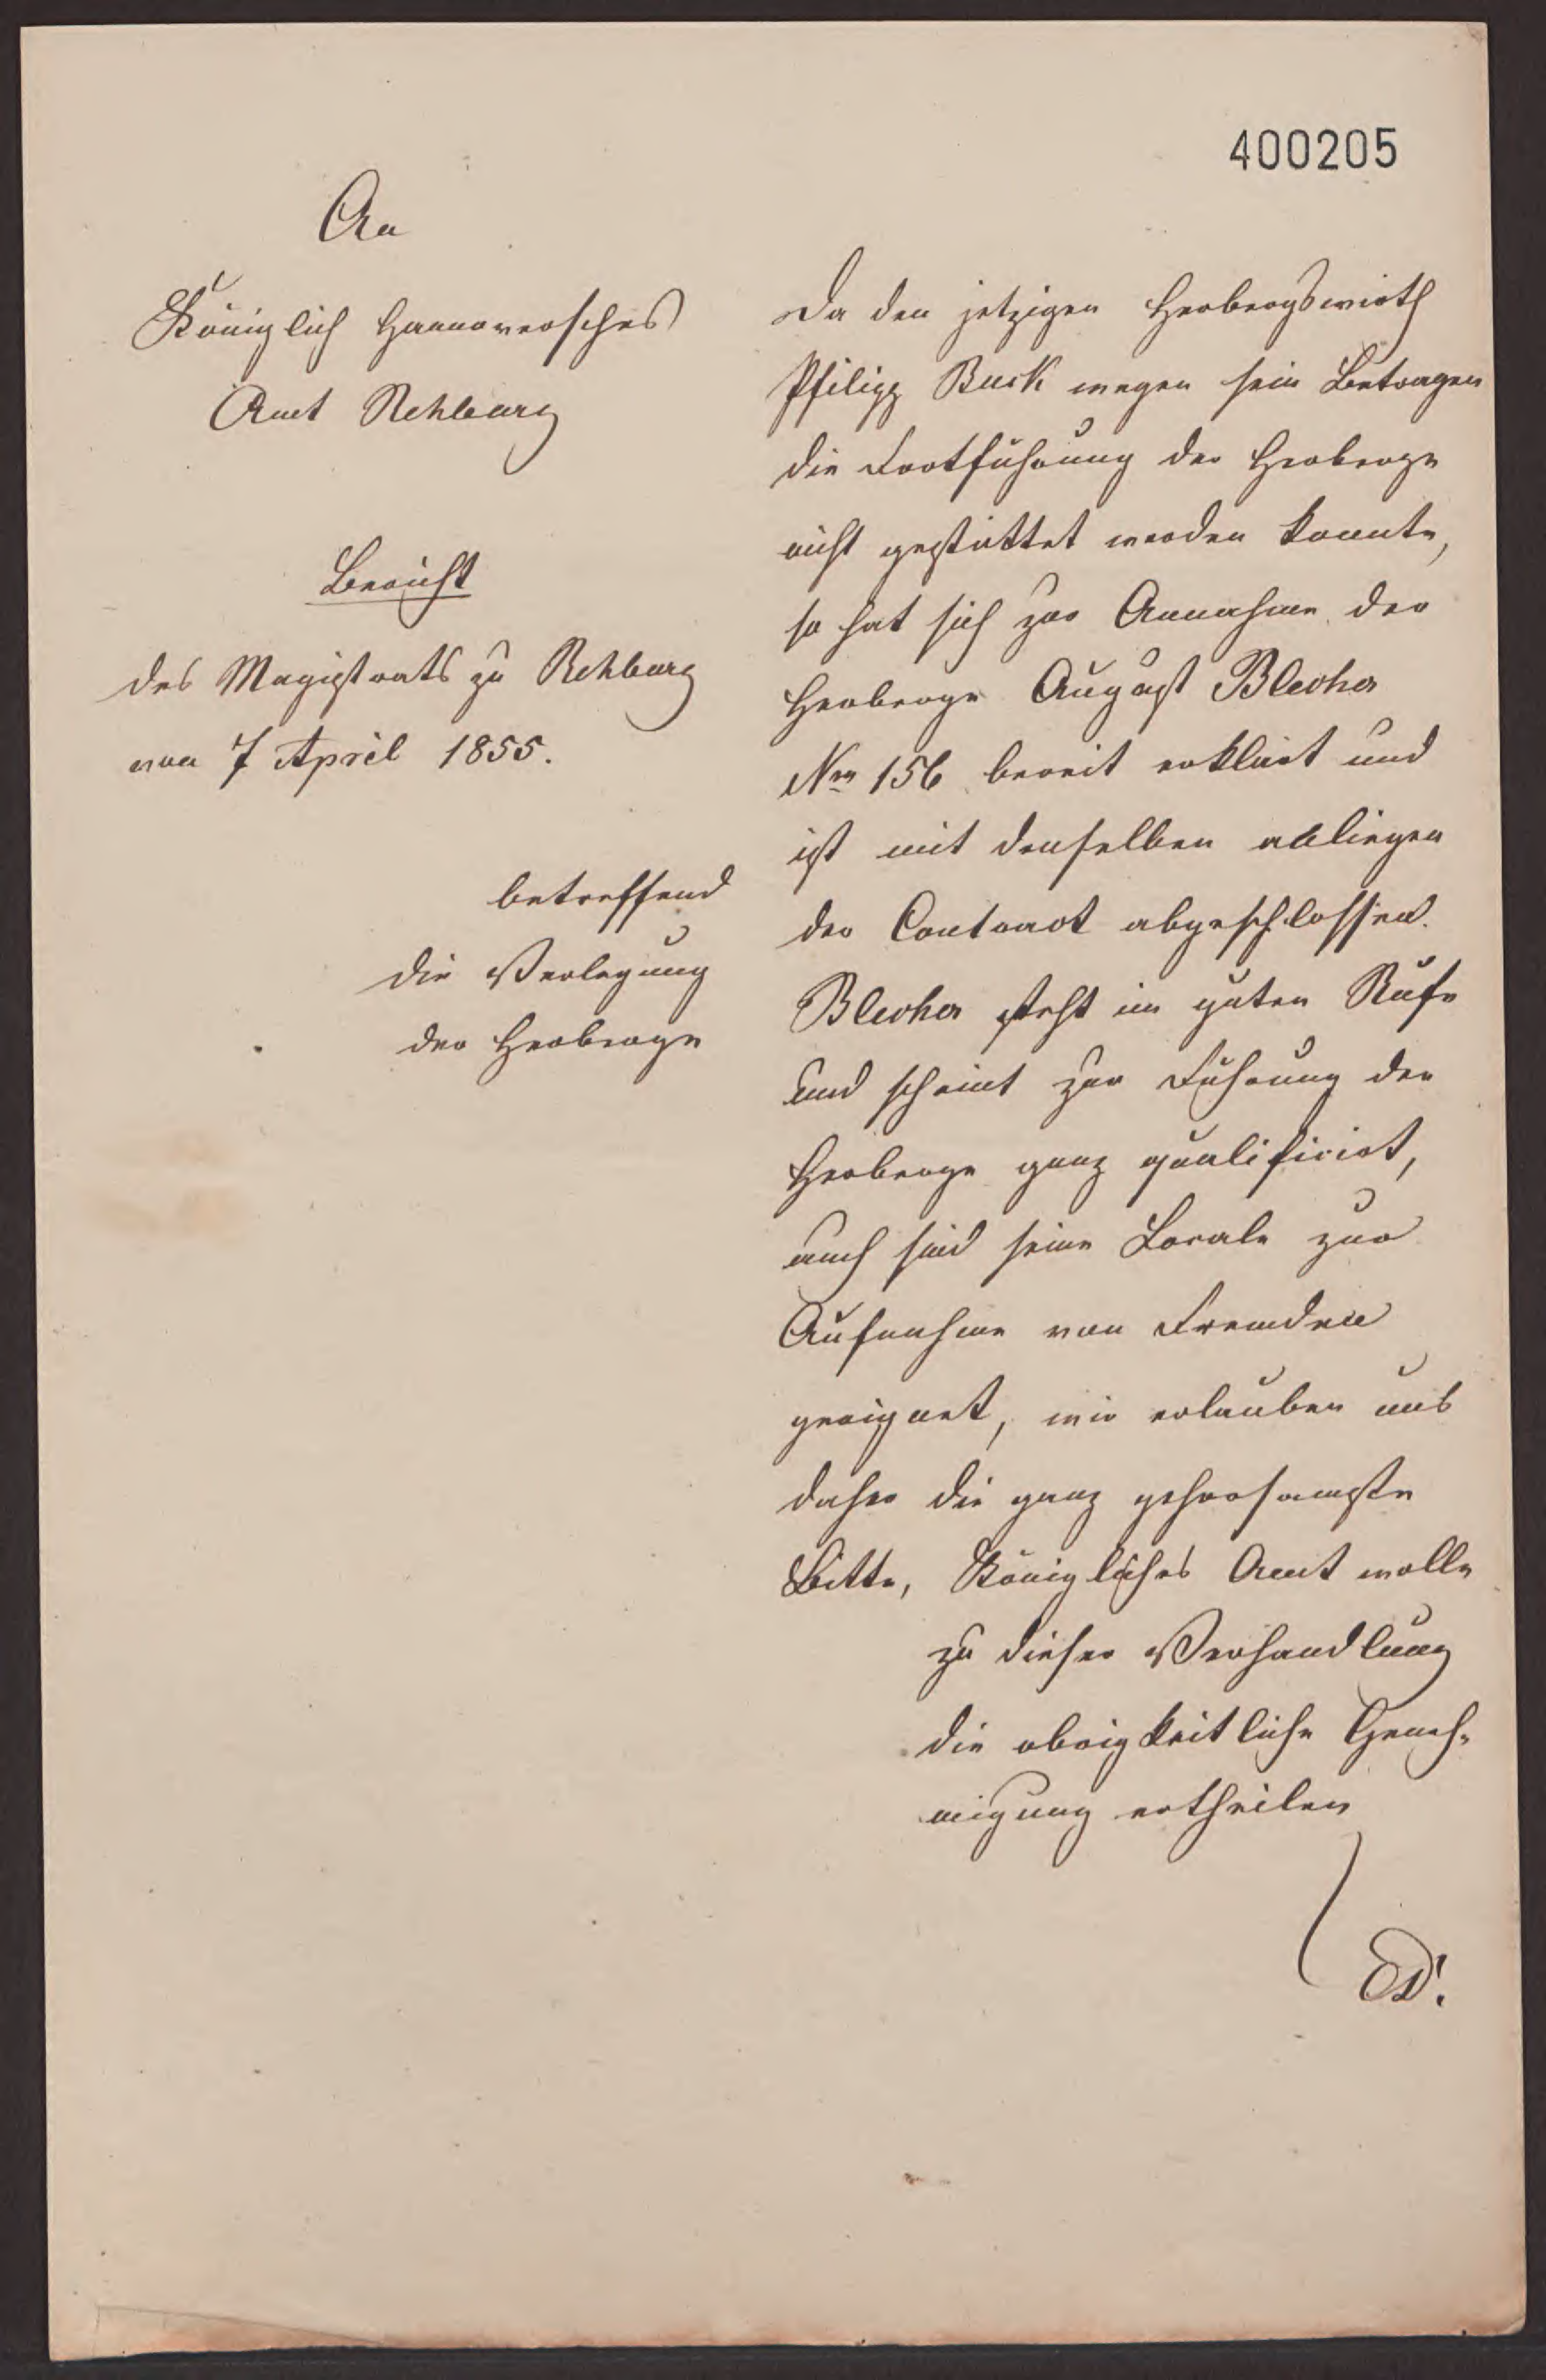 400205
An
Königlich Hannoversches
Amt Rehburg
Bericht
des Magistrats zu Rehburg
von 7 April 1855.
betreffend
die Verlegung
der Herberge
Da den jetzigen Herbergswirth
Philipp Busk wegen sein Betragen
die Fortführung der Herberge
nicht gestattet werden konnte,
so hat sich zur Annahme der
Herberge August Blecher
Nro 156 bereit erklärt und
ist mit denselben anliegen
der Contract abgeschlossen.
Blecher steht im guten Rufe
und scheint zur Führung der
Herberge ganz qualificirt,
auch sind seine Locale zur
Aufnahme von Fremden
geeignet, wir erlauben uns
daher die ganz gehorsamste
Bitte, Königliches Amt wolle
zu dieser Verhandlung
die obrigkeitliche Geneh-
migung ertheilen